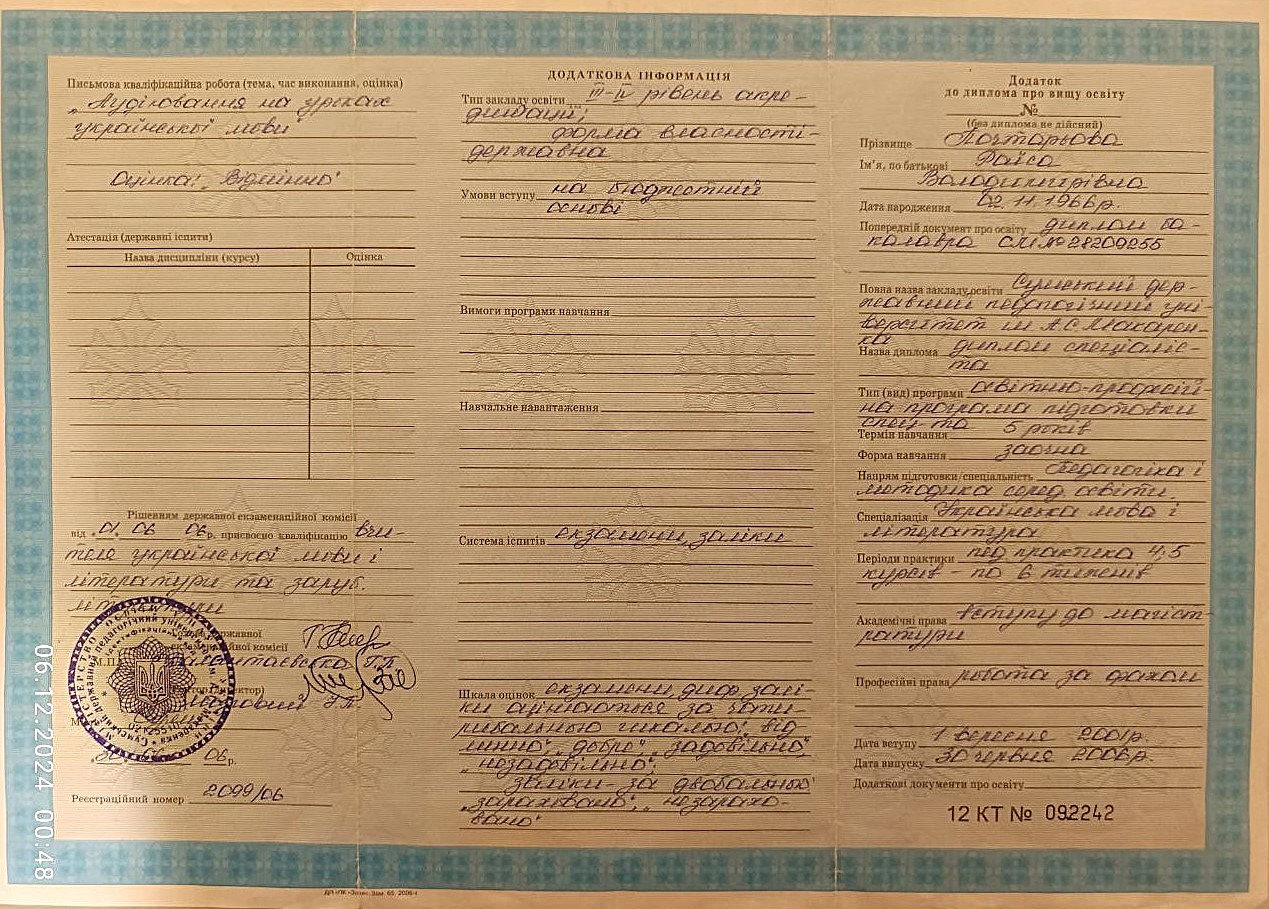 Письмова кваліфікаційна робота (тема, час виконання, оцінка)
„Аудіювання на уроках
української мови"
Оцінка: „Відмінно"
Атестація (державні іспити)
Назва дисципліни (курсу) Оцінка
Рішенням державної екзаменаційної комісії
від „01" 06 06р. присвоєно кваліфікацію вчи-
теля української мови і
літератури та заруб.
літератури
державної
екзаменаційної комісії
М.П.
Г.П.
06р.
Реєстраційний номер 2099/06
ДОДАТКОВА ІНФОРМАЦІЯ
Тип закладу освіти III-IV рівень акре-
дитації;
форма власності-
державна
Умови вступу на бюджетній
основі
Вимоги програми навчання
Навчальне навантаження
Система іспитів екзамени, заліки
Шкала оцінок екзамени, диф. залі-
ки оцінюються за чоти-
рибальною шкалою: „від
мінно", „добре", „задовільно",
„незадовільно";
заліки - за двобальною:
„зараховано", „незарахо-
вано"
Додаток
до диплома про вищу освіту
№
(без диплома не дійсний)
Прізвище Почтарьова
Ім'я, по батькові Раїса
Володимирівна
Дата народження 02.11.1966р.
Попередній документ про освіту диплом ба-
калавра СМ № 28209255
Повна назва закладу освіти Сумський дер-
жавний педагогічний уні-
верситет ім А.С. Макарен-
ка
Назва диплома диплом спеціаліс-
та
Тип (вид) програми освітньо-професій-
на програма підготовки
спец-та
Термін навчання 5 років
Форма навчання заочна
Напрям підготовки/спеціальність Педагогіка і
методика серед. освіти.
Спеціалізація Українська мова і
література
Періоди практики пед практика 4,5
курсів - по 6 тижнів
Академічні права вступу до магіст-
ратури
Професійні права робота за фахом
Дата вступу 1 вересня 2001р.
Дата випуску 30 червня 2006р.
Додаткові документи про освіту
12 КТ № 092242
06.12.2024 00:48